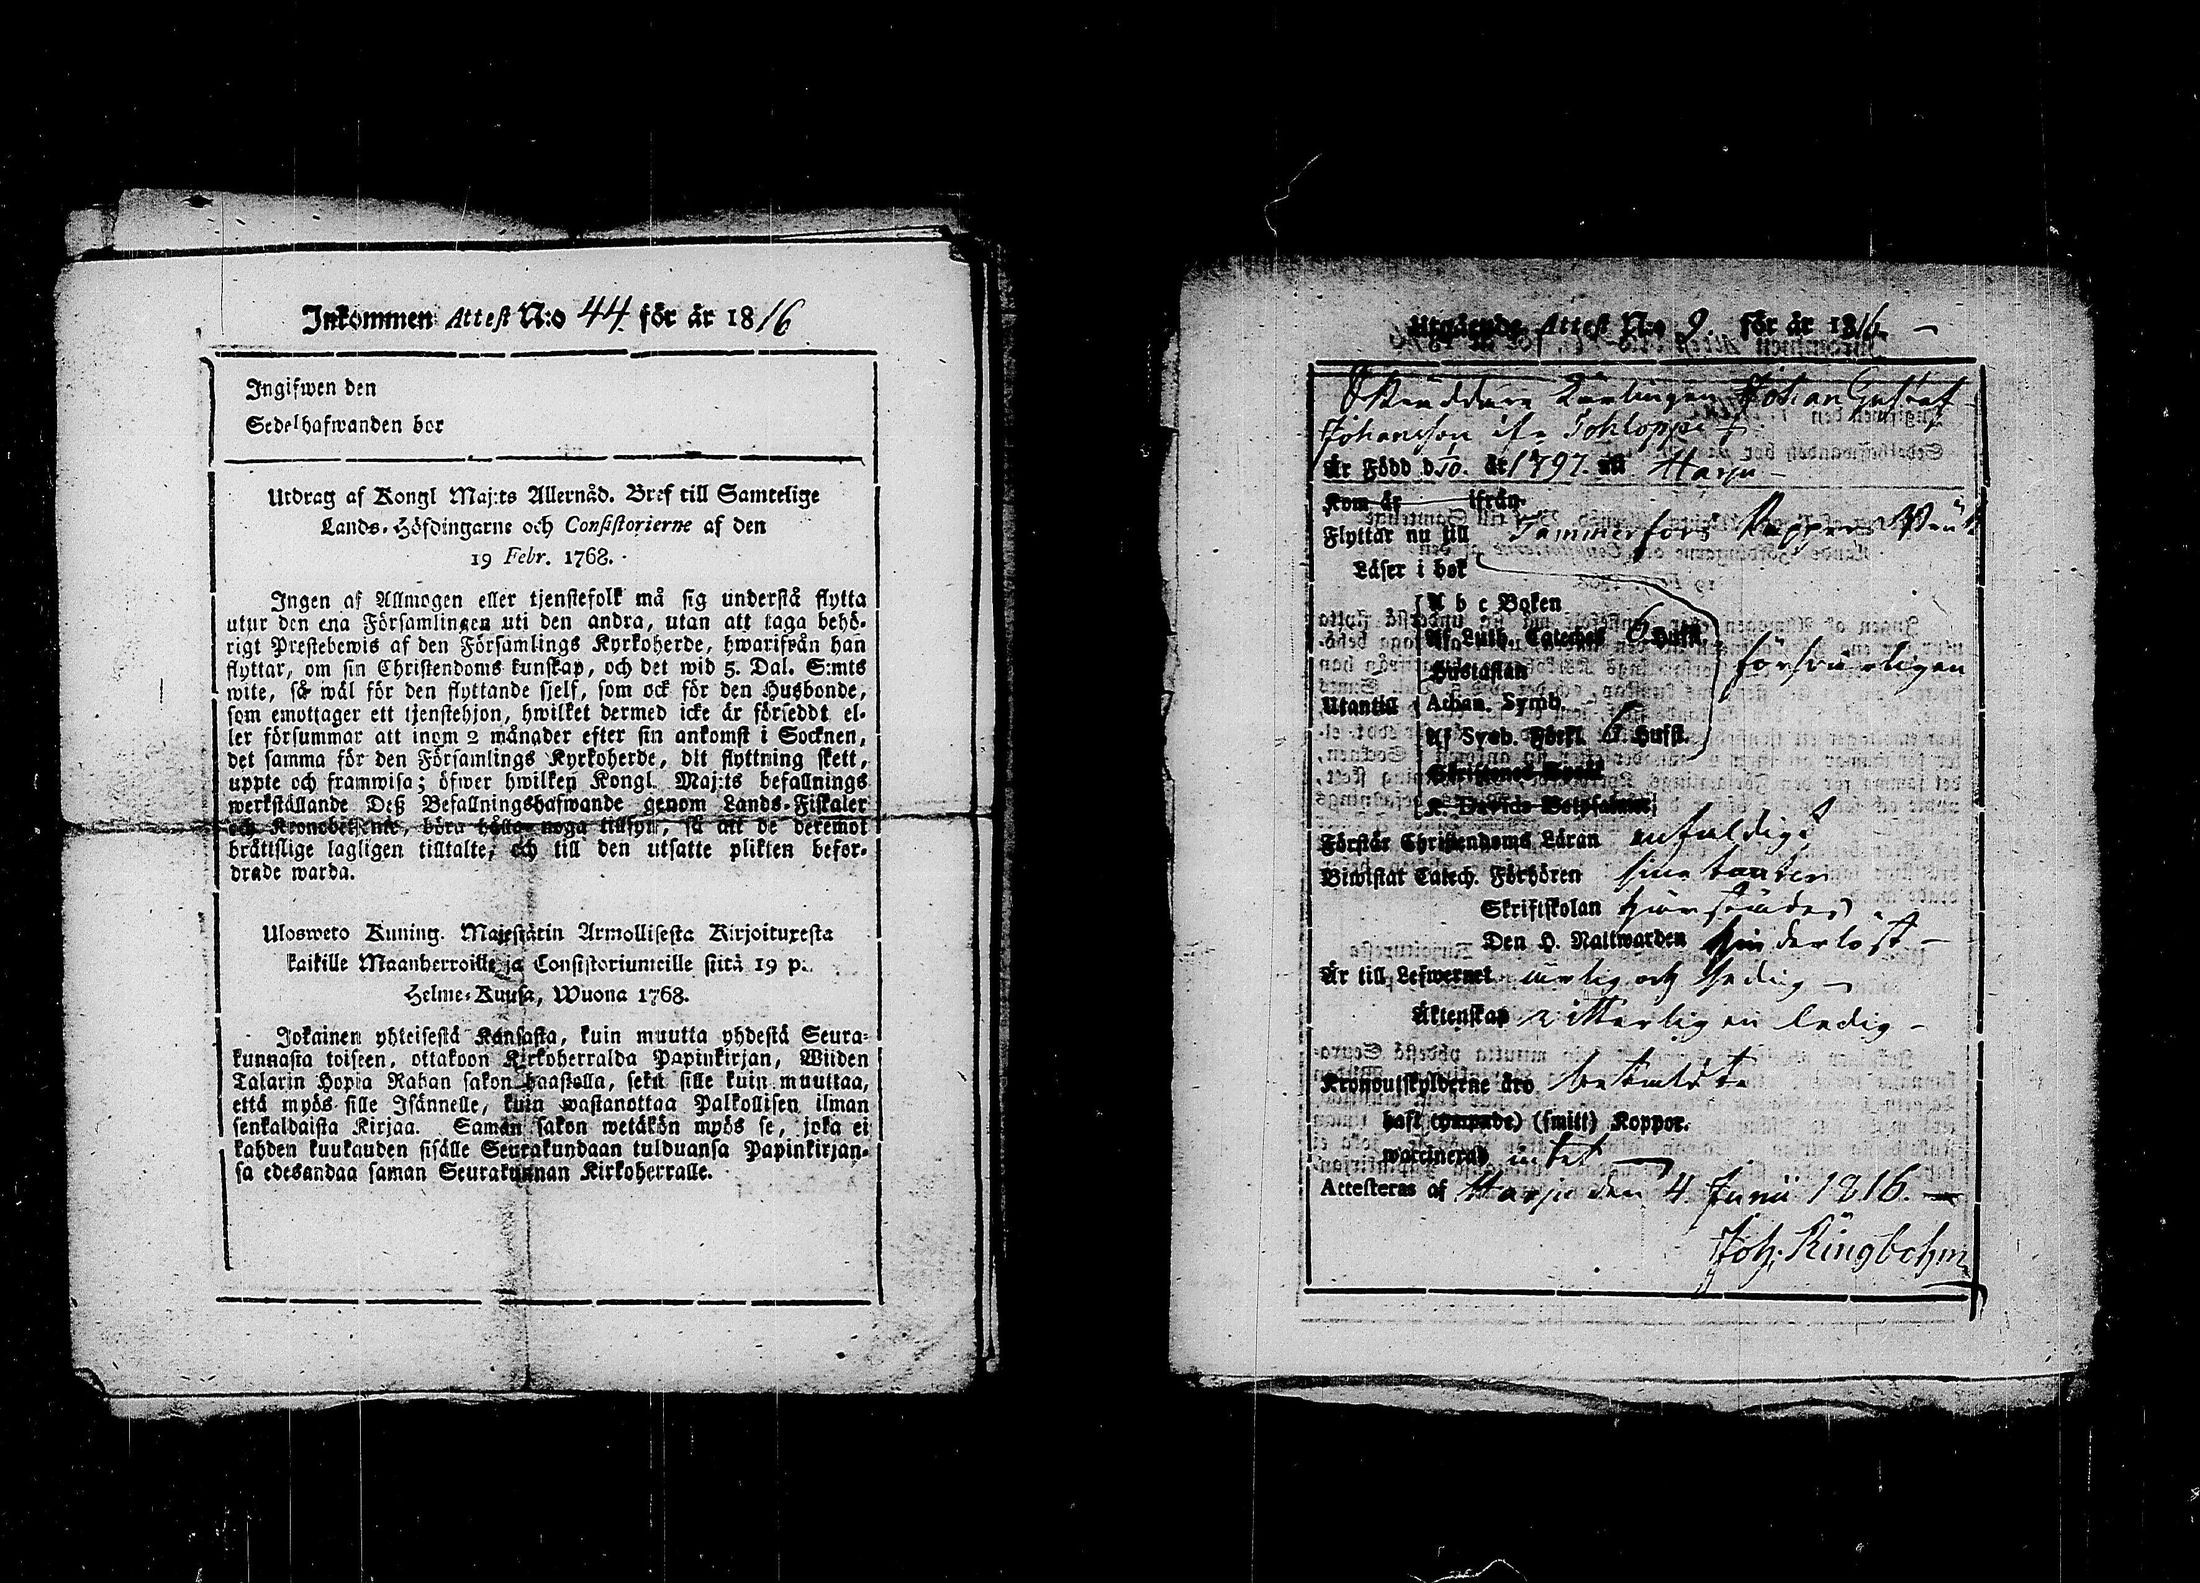 Inkommen Attest N:o 44. för år 1816
Ingifwen den
Sedelhafwanden bor
Utdrag af Kongl Maj:ts Allernåd. Bref till Samtelige
Lands-Höfdingarne och Consistorierne af den
19 Febr. 1768.
Ingen af Allmogen eller tjenstefolk må sig understå flytta
utur den ena Församlingen uti den andra, utan att taga behö-
rigt Prestebewis af den Församlings Kyrkoherde, hwarifrån han
flyttar, om sin Christendoms kunskap, och det wid 5. Dal. S:mts
wite, så wäl för den flyttande sjelf, som ock för den Husbonde,
som emottager ett tjenstehjon, hwilket dermed icke är förseddt el-
ler försummar att inom 2 månader efter sin ankomst i Socknen,
det samma för den Församlings Kyrkoherde, dit flyttning skett,
uppte och framwisa; öfwer hwilken Kongl. Maj:ts befallnings
werkställande Deß Befallningshafwande genom Lands-Fiskaler
och Kronobetjente, böra hålla noga tillsyn, så att de deremot
bråttslige lagligen tilltalte, och till den utsatte plikten befor-
drade warda.
Ulosweto Kuning. Majestätin Armollisesta Kirjoituxesta
kaikille Maanherroille ja Consistoriumeille siitä 19 p:
Helme-Kuusa, Wuona 1768.
Jokainen yhteisestä Kansasta, kuin muutta yhdestä Seura-
kunnasta toiseen, ottakoon Kirkoherralda Papinkirjan, Wiiden
Talarin Hopia Rahan sakon haastolla, sekä sille kuin muuttaa,
että myös sille Isännelle, kuin wastanottaa Palkollisen ilman
senkaldaista Kirjaa. Saman sakon wetäkön myös se, joka ei
kahden kuukauden sisälle Seurakundaan tulduansa Papinkirjan-
sa edesandaa saman Seurakunnan Kirkoherralle.
Utgående Attest N:o 9. för år 1816
Skräddare Lärlingen Johan Gustaf
Johansson ifr. Tohloppi
Är Född d. 10. år 1797. uti Harju
Kom år ifrån
Flyttar nu till Tammerfors
Läser i bok
A b c Boken
Af Luth. Cateches 6 Hufst.
Hustaflan försvarligen
Utantill Athan. Symb.
Af Sveb. Förkl. 6 Hufst.
Skriftenes Språk
K. Davids Botpsalmer
Förstår Christendoms Läran enfaldigt
Biwistat Catech. Förhören
Skriftskolan
Den H. Nattwarden hinderlöst
Är till Lefwernet ärlig och sedig
Äktenskap witterligen ledig
Kronoutskylderne äro betalde
haft (ympade) (smitt) Koppor.
waccinerad intet
Attesteras af Harju den 4 Junii 1816.
Joh. Ringbohm